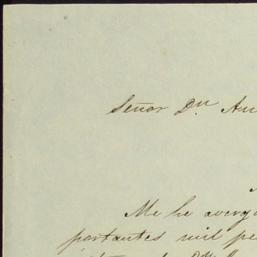 Señor Dn An
Me he averg
portantes mil pe